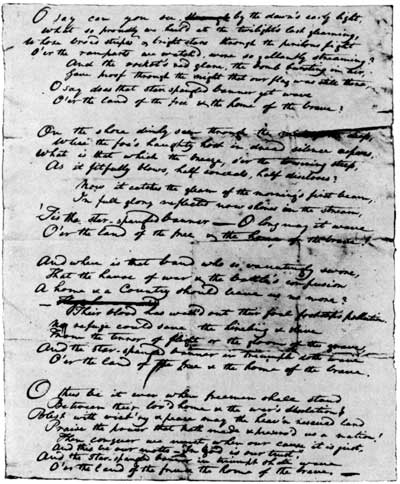 O say can you see, ~~through~~ by the dawn's early light,
What so proudly we hail'd at the twilight's last gleaming,
Whose broad stripes & bright stars through the perilous fight
O'er the ramparts we watch'd, were so gallantly streaming?
And the rocket's red glare, the bomb bursting in air,
Gave proof through the night that our flag was still there,
O say does that star-spangled banner yet wave
O'er the land of the free & the home of the brave?
On the shore dimly seen through the mists of the deep,
Where the foe's haughty host in dread silence reposes,
What is that which the breeze, o'er the towering steep,
As it fitfully blows, half conceals, half discloses?
Now it catches the gleam of the morning's first beam,
In full glory reflected now shines in the stream,
'Tis the star-spangled banner — O long may it wave
O'er the land of the free & the home of the brave!
And where is that band who so vauntingly swore,
That the havoc of war & the battle's confusion
A home & a Country should leave us no more?
Their blood has wash'd out their foul footstep's pollution.
No refuge could save the hireling & slave
From the terror of flight or the gloom of the grave,
And the star-spangled banner in triumph doth wave
O'er the land of the free & the home of the brave.
O thus be it ever when freemen shall stand
Between their lov'd home & the war's desolation!
Blest with vict'ry & peace may the heav'n rescued land
Praise the power that hath made & preserv'd us a nation!
Then conquer we must, when our cause it is just,
And this be our motto — "In God is our trust,"
And the star-spangled banner in triumph shall wave
O'er the land of the free & the home of the brave. —